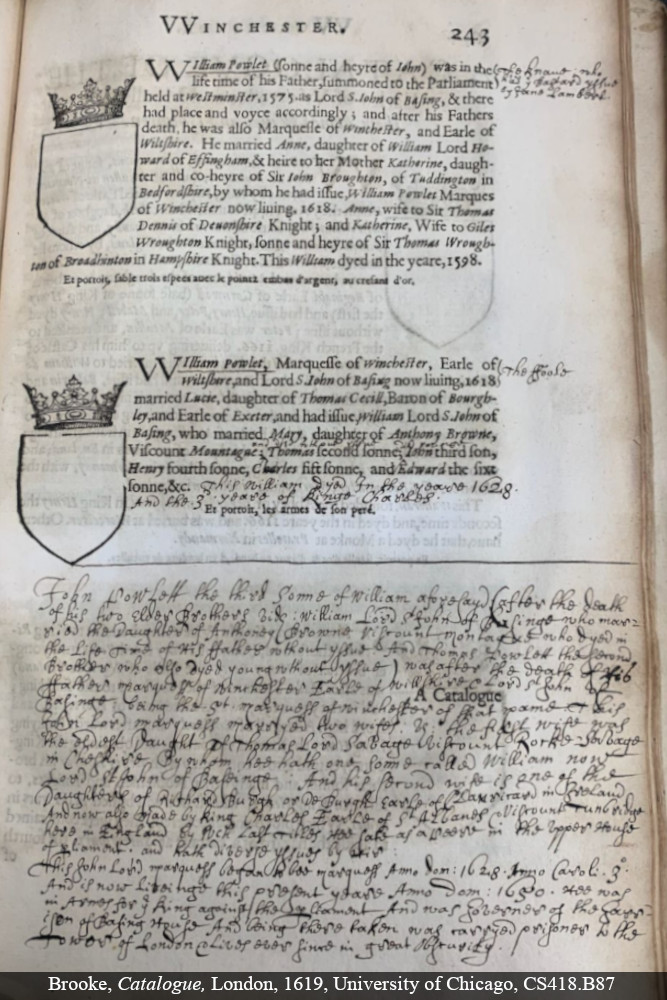 VVINCHESTER.
243
William Powlet (sonne and heyre of Iohn) was in the
life time of his Father, summoned to the Parliament
held at Westminster, 1575. as Lord S. Iohn of Basing, & there
had place and voyce accordingly; and after his Fathers
death, he was also Marquesse of Winchester, and Earle of
Wiltshire. He married Anne, daughter of William Lord Ho-
ward of Effingham, & heire to her Mother Katherine, daugh-
ter and co-heyre of Sir Iohn Broughton, of Tuddington in
Bedfordshire, by whom he had issue, William Powlet Marques
of Winchester now liuing, 1618. Anne, wife to Sir Thomas
Dennis of Deuonshire Knight; and Katherine, Wife to Giles
Wroughton Knight, sonne and heyre of Sir Thomas Wrough-
ton of Broadhinton in Hampshire Knight. This William dyed in the yeare, 1598.
(the knaue: who
had bastard yssue
by Jane Lambert.
Et portoit, sable trois espees auec le pointz embas d'argent, au cresant d'or.
William Powlet, Marquesse of Winchester, Earle of
Wiltshire, and Lord S. Iohn of Basing now liuing, 1618
married Lucie, daughter of Thomas Cecill, Baron of Bourgh-
ley, and Earle of Exeter, and had issue, William Lord S. Iohn of
Basing, who married Mary, daughter of Anthony Browne,
Viscount Mountague; Thomas second sonne, Iohn third son,
Henry fourth sonne, Charles fift sonne, and Edward the sixt
sonne, &c. This William dyed In the yeare 1628.
And the 3d. yeare of Kinge Charles.
(the ffoole
Et portoit, les armes de son peré.
John Powlett the third Sonne of William aforesayd (after the death
of his two Elder Brothers vidz: William Lord St John of Basinge who mar-
ried the Daughter of Anthoney Browne Viscount Montague who dyed in
the Life Time of His ffather without yssue And Thomas Powlett the second
Brother who also dyed young without yssue) was after the death of His
ffather marquess of Winchester Earle of Willshire Lord St John of
Basinge: being the marquess of Winchester of that name This
John Lord marquess maryed two wifes. the first wife was
the eldest Daught of Thomas Lord Savage Viscount Rocke-Savage
in Cheshire By whom hee hath one sonne called William now
Lord St John of Baseinge: And his second wife is one of the
Daughters of Richard Burgh or De Burgh Earle of Clanricard in Ireland
And now also made by King Charles Earle of St Albanes Viscount Tunbridge
here in England by which Last Titles Hee sate as a Peere in the Upper House
of Parliament: and hath diverse yssues by her:
This John Lord marquess began to bee marquess Anno Dom: 1628. Anno Caroli. 3o.
And is now Liveinge this present yeare Anno Dom: 1650. Hee was
in Armes for ye King against the Parliament And was Governer of the Garr-
ison of Basing House And being there taken was carryed prisoner to the
Tower of London Lives ever since in great Obscurity.
A Catalogue
Brooke, Catalogue, London, 1619, University of Chicago, CS418.B87